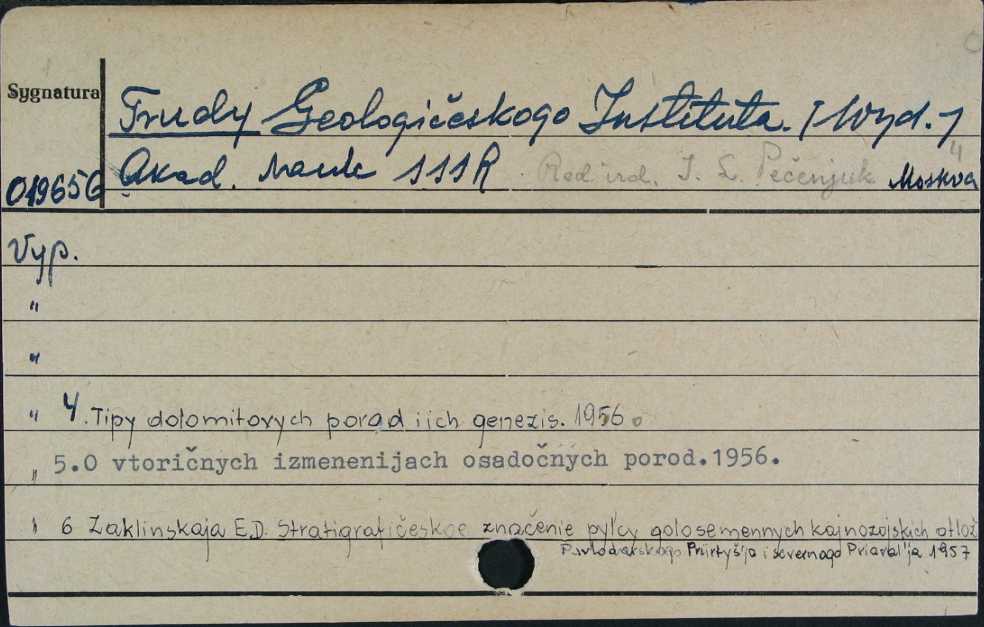 Sygnatura
Trudy Geologičeskogo Instituta. [Wyd.]
019656 Akad. Nauk SSSR. Red. izd. I. L. Pečenjuk Moskva
Vyp.
"
"
" 4. Tipy dolomitovych porad i ich genezis. 1956.
" 5.O vtoričnych izmenenijach osadočnych porod.1956.
" 6 Zaklinskaja E.D. Stratigrafičeskoe značenie pyl'cy golosemennych kajnozojskich otlož
Pavlodarskogo Priirtyšja i severnogo Priaral'ja 1957